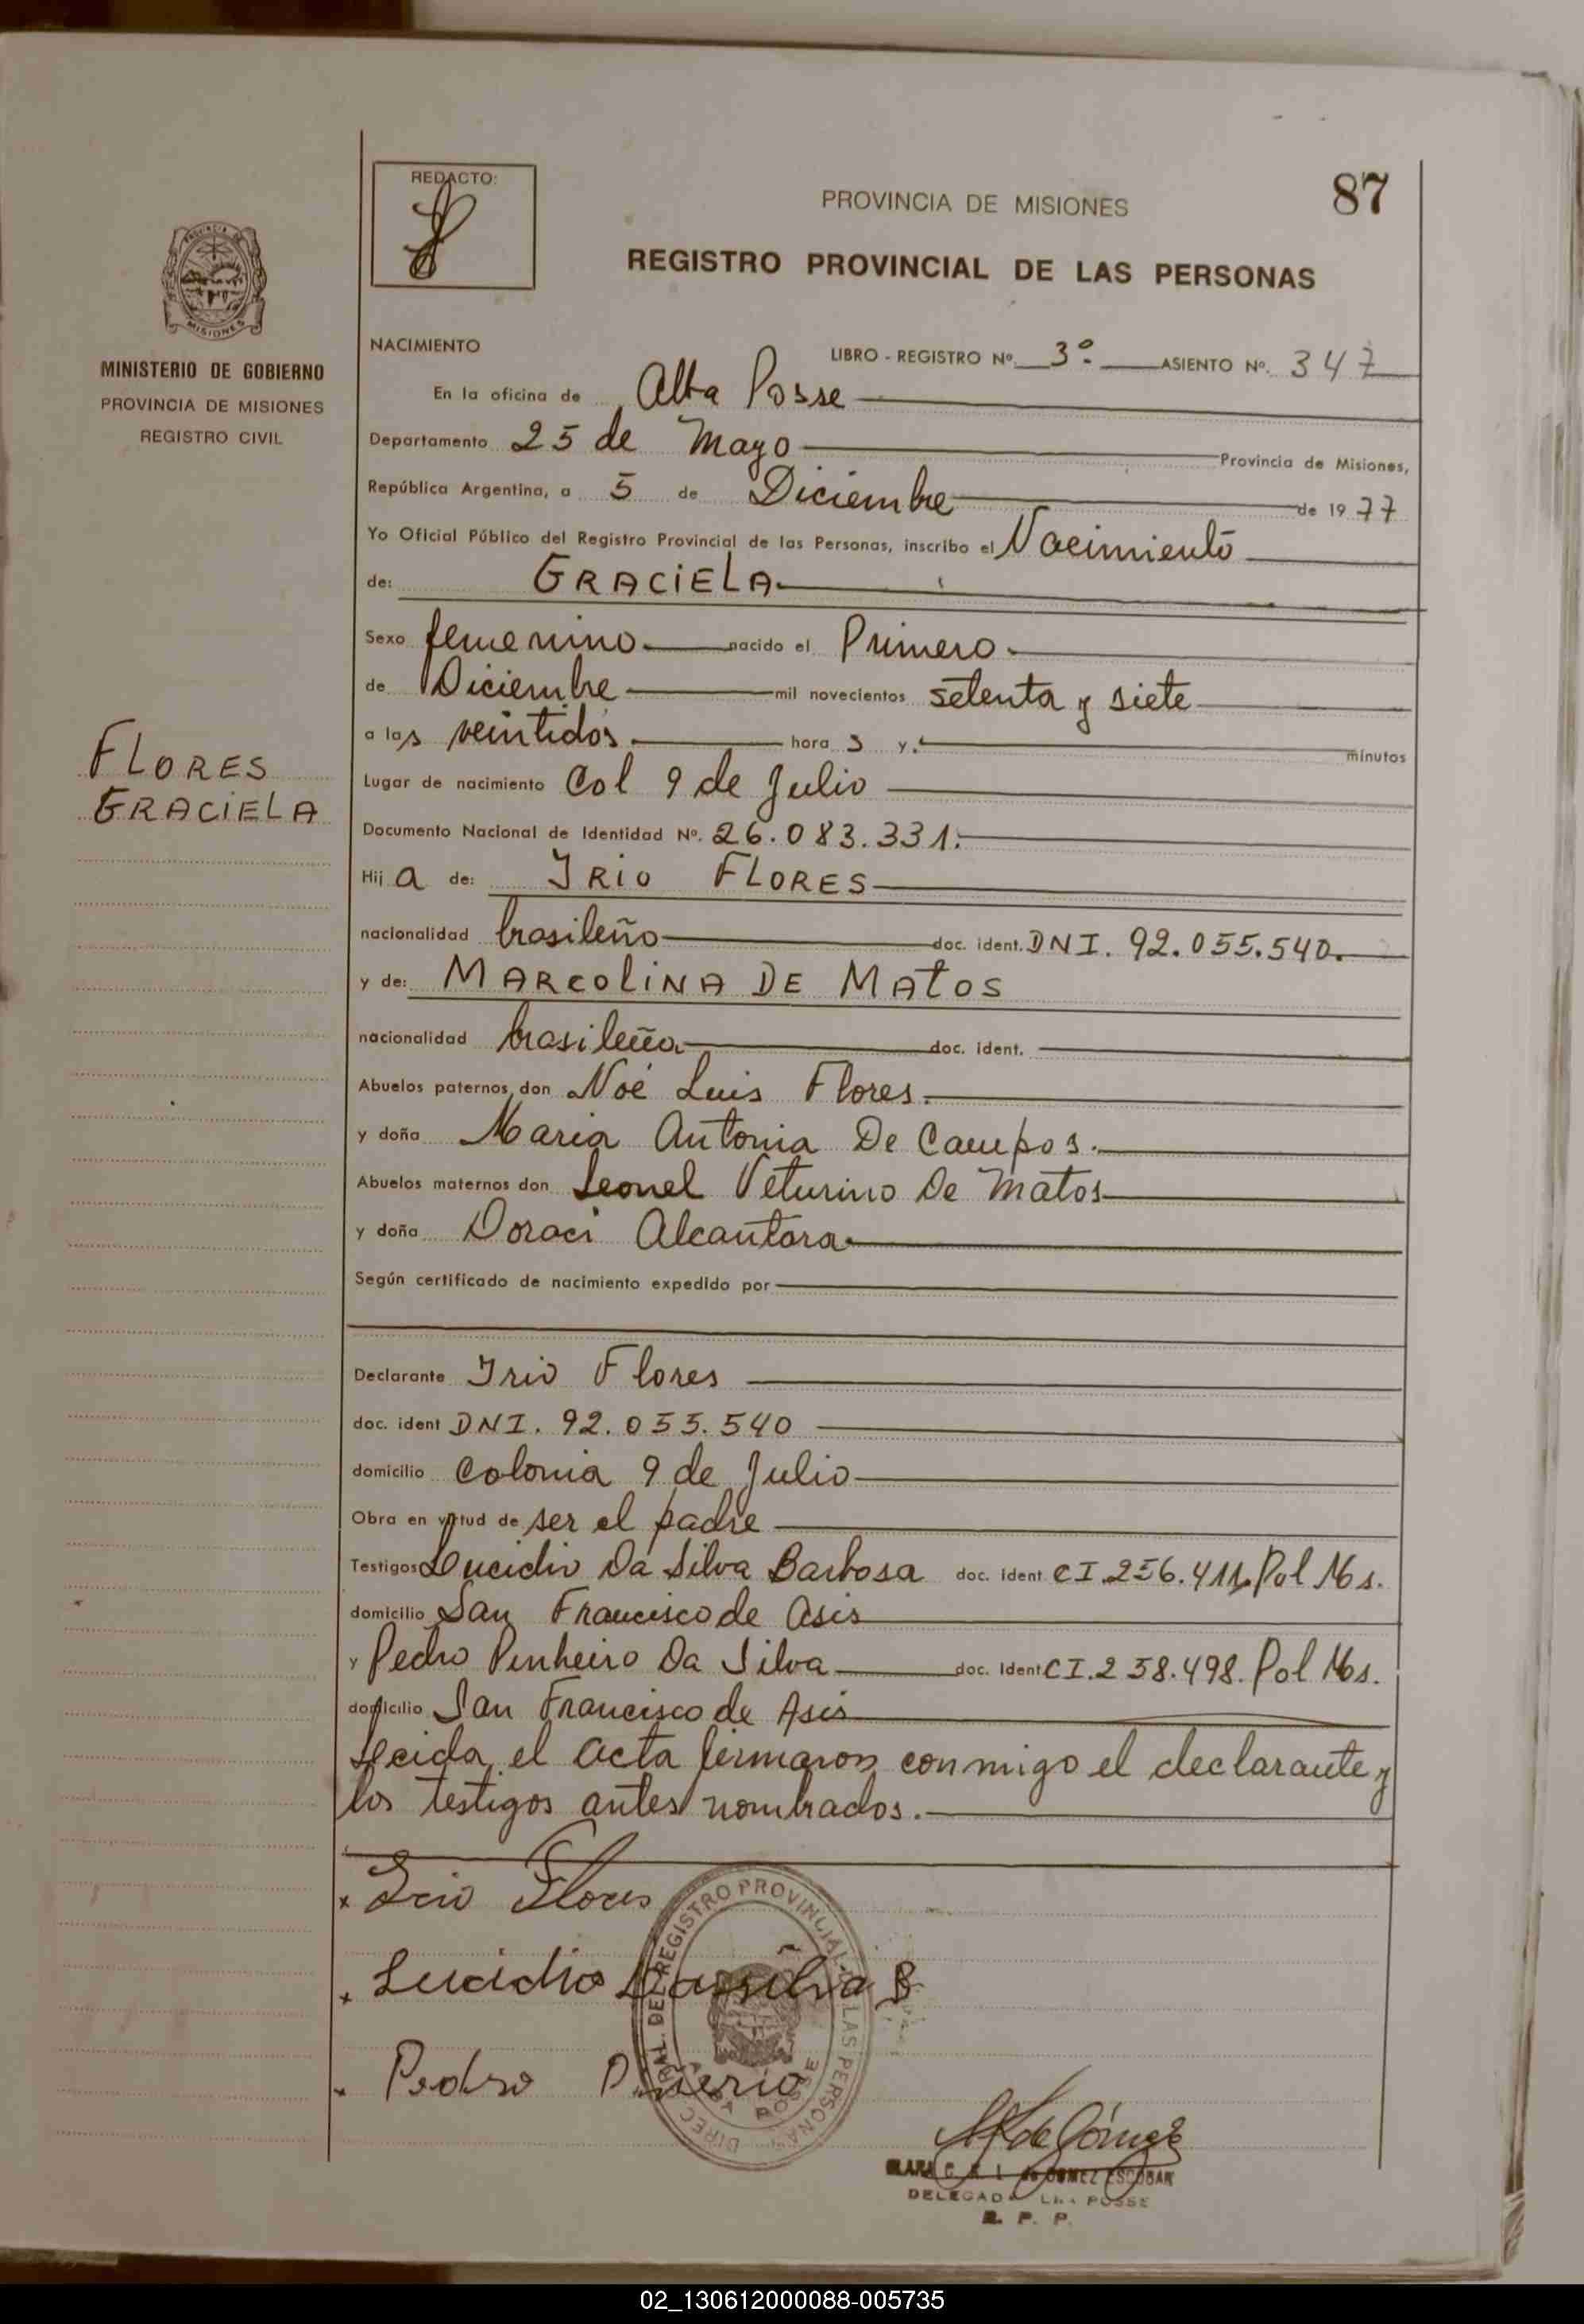 REDACTO:
PROVINCIA DE MISIONES
87
REGISTRO PROVINCIAL DE LAS PERSONAS
MISIONES
MINISTERIO DE GOBIERNO
PROVINCIA DE MISIONES
REGISTRO CIVIL
FLORES
GRACIELA
NACIMIENTO
LIBRO - REGISTRO Nº. 3º. ASIENTO Nº. 347
En la oficina de Alba Posse
Departamento 25 de Mayo Provincia de Misiones,
República Argentina, a 5 de Diciembre de 1977
Yo Oficial Público del Registro Provincial de las Personas, inscribo el Nacimiento
de: GRACIELA
Sexo femenino nacido el Primero
de Diciembre mil novecientos setenta y siete
a las veintidós hora s y. minutos
Lugar de nacimiento Col 9 de Julio
Documento Nacional de Identidad Nº. 26.083.331.
Hij a de: IRIO FLORES
nacionalidad brasileño doc. ident. DNI. 92.055.540.
y de: MARCOLINA DE MATOS
nacionalidad brasileña doc. ident.
Abuelos paternos don Noé Luis Flores.
y doña Maria Antonia De Campos.
Abuelos maternos don Leonel Veturino De Matos
y doña Doraci Alcantara
Según certificado de nacimiento expedido por
Declarante Irio Flores
doc. ident DNI. 92.055.540
domicilio Colonia 9 de Julio
Obra en virtud de ser el padre
Testigos Lucidio Da Silva Barbosa doc. ident CI.256.411. Pol Ms.
domicilio San Francisco de Asis
y Pedro Pinheiro Da Silva doc. Ident CI.258.498. Pol Ms.
domicilio San Francisco de Asis
Leida el acta firmaron conmigo el declarante y
los testigos antes nombrados.
x Irio Flores
x Lucidio Dasilva B
x Pedro Pinerio
DIREC. GRAL. DEL REGISTRO PROVINCIAL DE LAS PERSONAS
ALBA POSSE
de Gómez
GOMEZ ESCOBAR
DELEGADA POSSE
R. P. P.
02_130612000088-005735